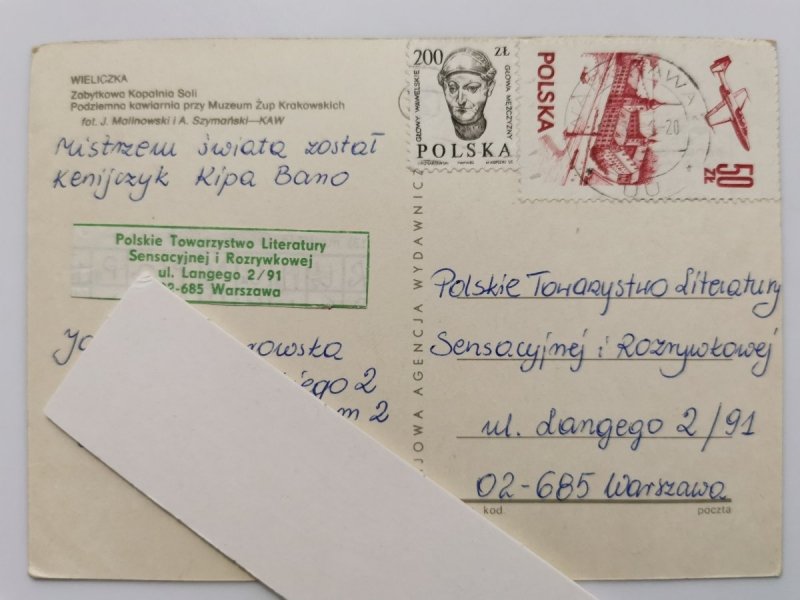 WIELICZKA
Zabytkowa Kopalnia Soli
Podziemna kawiarnia przy Muzeum Żup Krakowskich
fot. J. Malinowski i A. Szymański—KAW
Mistrzem świata został
Kenijczyk Kipa Bano
Polskie Towarzystwo Literatury
Sensacyjnej i Rozrywkowej
ul. Langego 2/91
02-685 Warszawa
2
m 2
JOWA AGENCJA WYDAWNIC
200 ZŁ
GŁOWY WAWELSKIE
GŁOWA MĘŻCZYZNY
POLSKA
POLSKA
50 ZŁ
Polskie Towarzystwo Literatury
Sensacyjnej i Rozrywkowej
ul. Langego 2/91
02-685 Warszawa
kod.
poczta